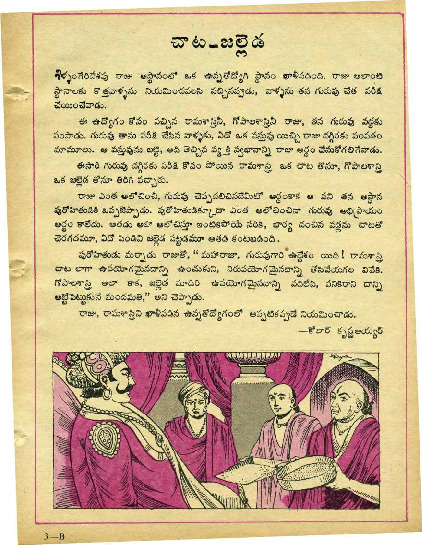 చాట-జల్లెడ
శృంగగిరిదేశపు రాజు ఆస్థానంలో ఒక ఉన్నతోద్యోగి స్థానం ఖాళీపడింది. రాజు అలాంటి
స్థానాలకు కొత్తవాళ్ళను నియమించవలసి వచ్చినప్పుడు, వాళ్ళను తన గురువు చేత పరీక్ష
చేయించేవాడు.
ఈ ఉద్యోగం కోసం వచ్చిన రామశాస్త్రినీ, గోపాలశాస్త్రినీ రాజు, తన గురువు వద్దకు
పంపాడు. గురువు తాను పరీక్ష చేసిన వాళ్ళకు, ఏదో ఒక వస్తువు యిచ్చి రాజు దగ్గిరకు పంపటం
మామూలు. ఆ వస్తువును బట్టి, అది తెచ్చిన వ్యక్తి స్వభావాన్ని రాజు అర్థం చేసుకోగలిగేవాడు.
ఈసారి గురువు దగ్గిరకు పరీక్ష కోసం పోయిన రామశాస్త్రి ఒక చాట తోనూ, గోపాలశాస్త్రి
ఒక జల్లెడ తోనూ తిరిగి వచ్చారు.
రాజు ఎంత ఆలోచించీ, గురువు చెప్పదలిచినదేమిటో అర్థంకాక ఆ పని తన ఆస్థాన
పురోహితుడికి ఒప్పజెప్పాడు. పురోహితుడిక్కూడా ఎంత ఆలోచించినా గురువు అభిప్రాయం
అర్థం కాలేదు. అతడు అలా ఆలోచిస్తూ ఇంటికిపోయే సరికి, భార్య దంచిన వడ్లను చాటతో
చెరగడమూ, ఏదో పిండిని జల్లెడ పట్టడమూ అతడి కంటబడింది.
పురోహితుడు మర్నాడు రాజుతో, "మహారాజా, గురువుగారి ఉద్దేశం యిది! రామశాస్త్రి
చాట లాగా ఉపయోగమైనదాన్ని ఉంచుకుని, నిరుపయోగమైనదాన్ని తీసివేయగల వివేకి.
గోపాలశాస్త్రి అలా కాక, జల్లెడ మాదిరి ఉపయోగమైనదాన్ని వదిలేసి, పనికిరాని దాన్ని
అట్టిపెట్టుకునే మందమతి," అని చెప్పాడు.
రాజు, రామశాస్త్రిని ఖాళీపడిన ఉన్నతోద్యోగంలో అప్పటికప్పుడే నియమించాడు.
—కోలార్ కృష్ణఅయ్యర్
3—B